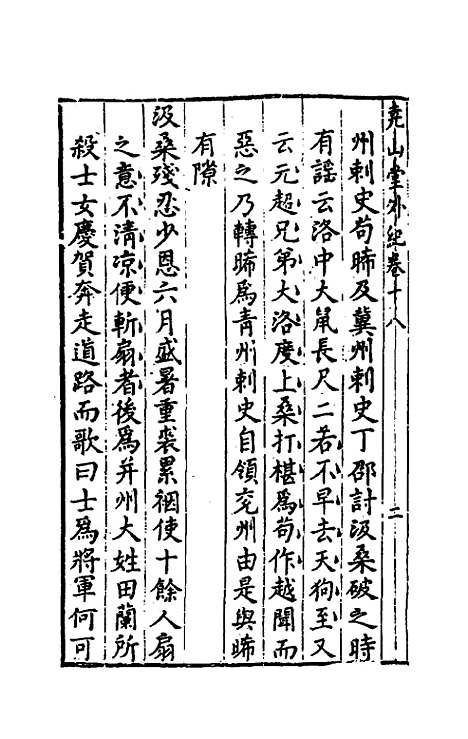 堯山堂外紀卷十八 二
州刺史茍晞及冀州刺史丁邵討汲桑破之時
有謡云洛中大䑕長尺二若不早去天狗至又
云元超兄弟大洛度上桑打椹爲茍作越聞而
惡之乃轉晞爲青州刺史自領兖州由是與晞
有隙
汲桑殘忍少恩六月盛暑重裘累裀使十餘人扇
之意不清凉便斬扇者後爲并州大姓田蘭所
殺士女慶賀奔走道路而歌曰士爲將軍何可